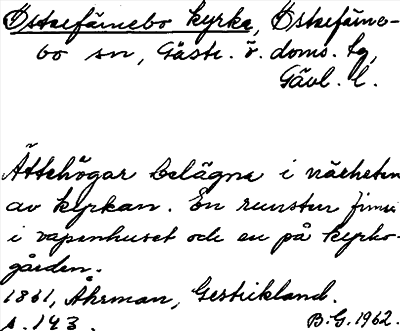 Östrefärnebo kyrka, Östrefärne-
bo sn, Gästr. ö. doms. tg,
Gävl. l.
Ättehögar belägna i närheten
av kyrkan. En runsten finns
i vapenhuset och en på kyrko-
gården.
1861, Åhrman, Gestrikland.
s. 143. B.G. 1962.